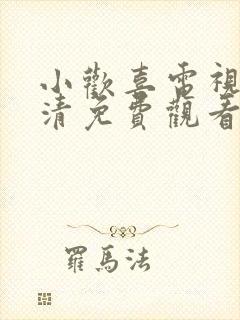 小歡喜電視
清免費觀看
羅馬法